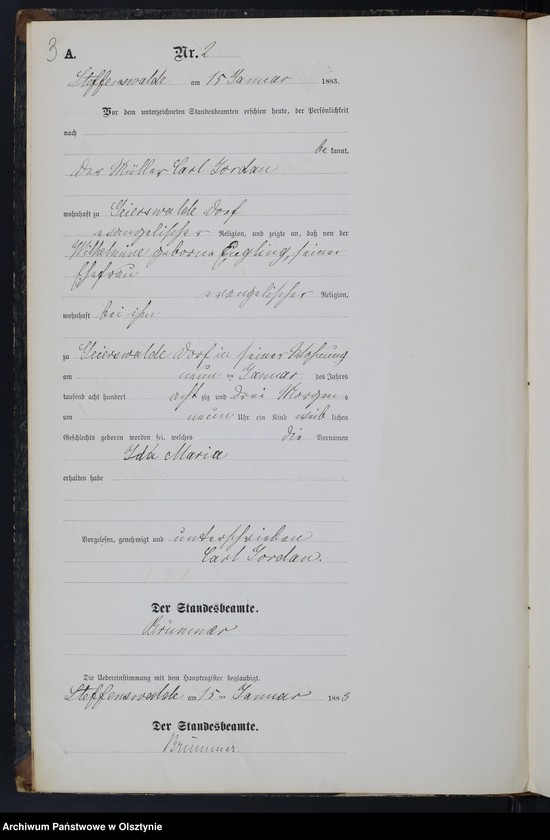 3 A. Nr. 2
Steffenswalde am 15 Januar 1883.
Vor dem unterzeichneten Standesbeamten erschien heute, der Persönlichkeit
nach
be kannt,
der Müller Carl Jordan
wohnhaft zu Geierswalde Dorf
evangelischer Religion, und zeigte an, daß von der
Wilhelmine geborne Engling, seiner
Ehefrau
evangelischer Religion,
wohnhaft bei ihm
zu Geierswalde Dorf in seiner Wohnung
am neun ten Januar des Jahres
tausend acht hundert acht zig und drei Morgens
um neun Uhr ein Kind weib lichen
Geschlechts geboren worden sei, welches die Vornamen
Ida Maria
erhalten habe
Vorgelesen, genehmigt und unterschrieben
Carl Jordan.
Der Standesbeamte.
Brümmer
Die Uebereinstimmung mit dem Hauptregister beglaubigt.
Steffenswalde am 15 ten Januar 1883
Der Standesbeamte.
Brümmer.
Archiwum Państwowe w Olsztynie
Archiwum Państwowe w Olsztynie